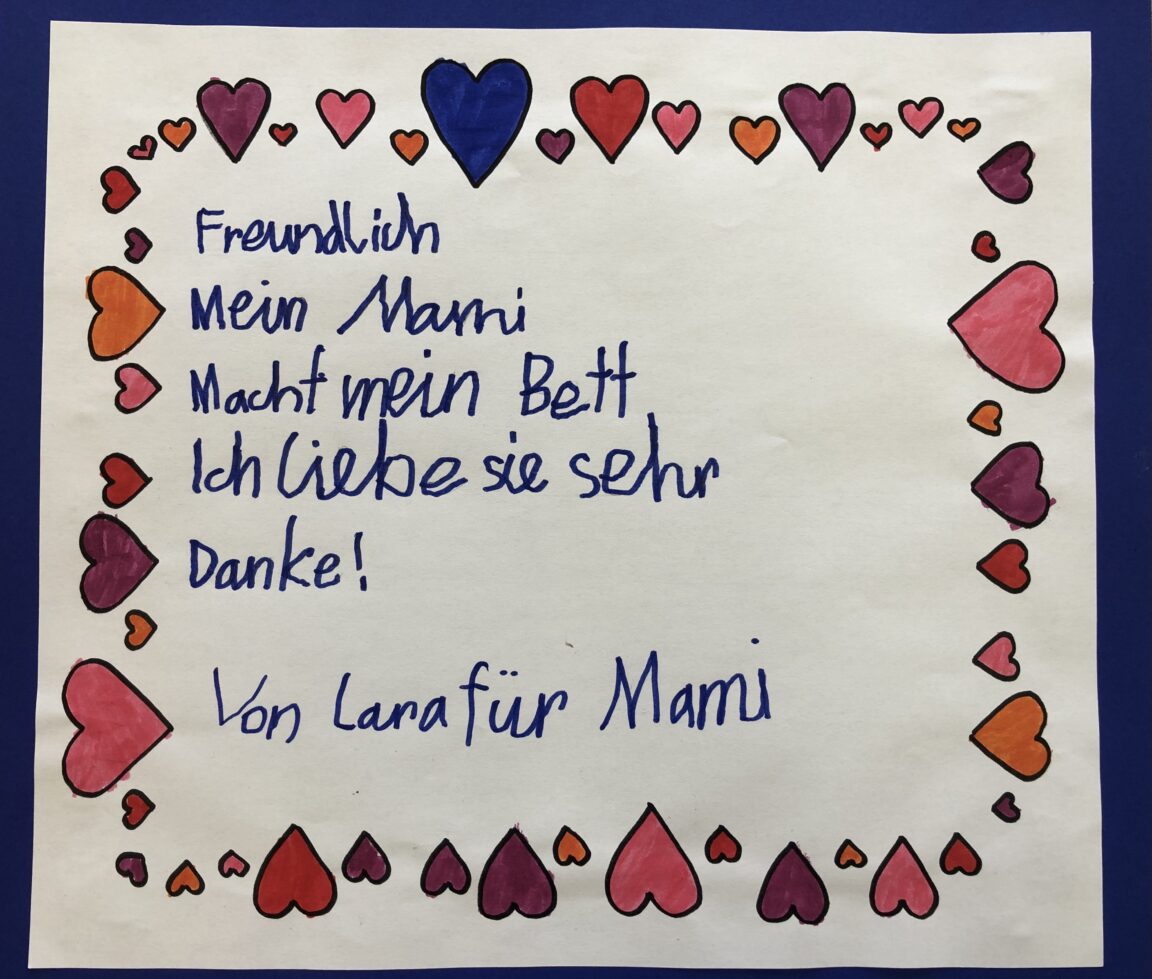 Freundlich
Mein Mami
Macht mein Bett
Ich liebe sie sehr
Danke!
Von Lara für Mami